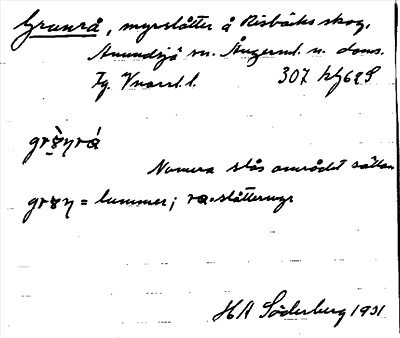 Granrå, myrslåtter å Risbäcks skog,
Anundsjö sn. Ångermld. n. doms.
Fg. Vnorrl. l. 307 hg 62 S
grɤ̀ŋrá
Numera slås området sällan
grɤŋ = lummer; ra = slåttermyr
HA Söderberg 1931